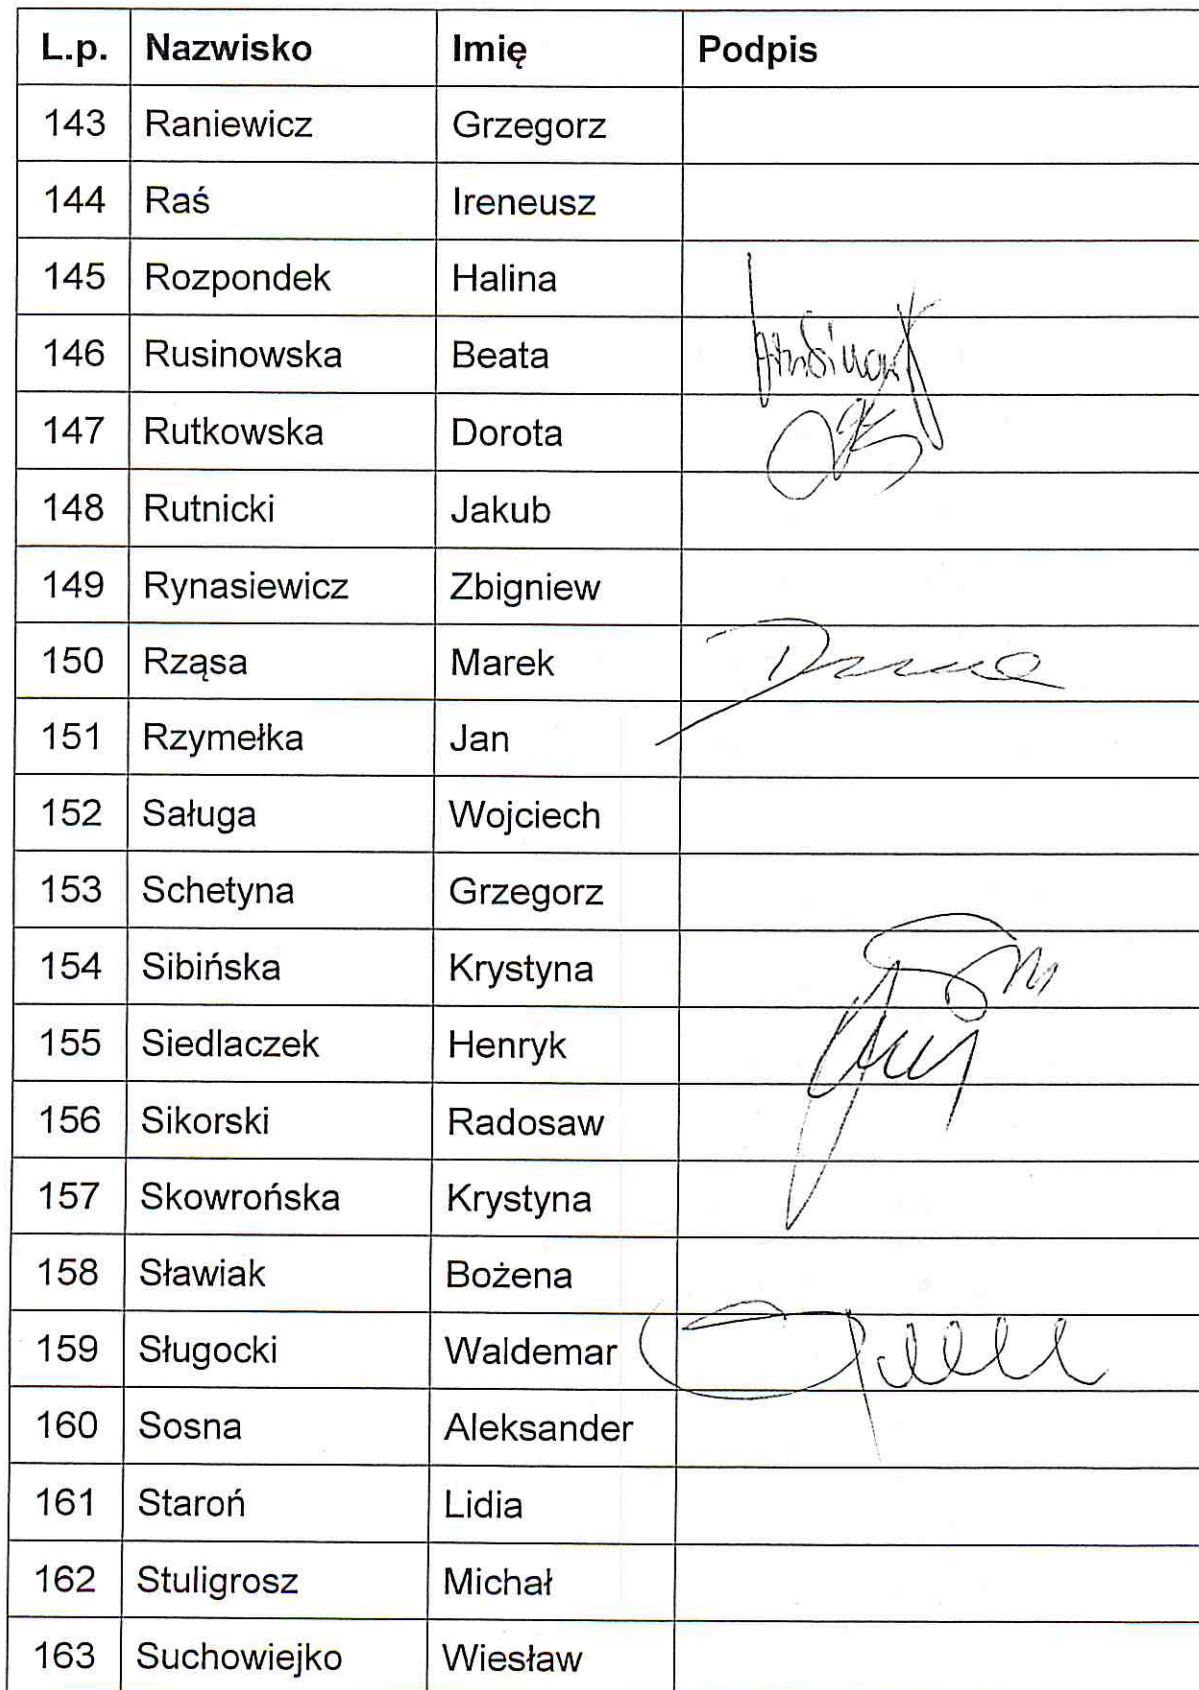 L.p. Nazwisko Imię Podpis
143 Raniewicz Grzegorz
144 Raś Ireneusz
145 Rozpondek Halina
146 Rusinowska Beata
147 Rutkowska Dorota
148 Rutnicki Jakub
149 Rynasiewicz Zbigniew
150 Rząsa Marek
151 Rzymełka Jan
152 Saługa Wojciech
153 Schetyna Grzegorz
154 Sibińska Krystyna
155 Siedlaczek Henryk
156 Sikorski Radosaw
157 Skowrońska Krystyna
158 Sławiak Bożena
159 Sługocki Waldemar
160 Sosna Aleksander
161 Staroń Lidia
162 Stuligrosz Michał
163 Suchowiejko Wiesław